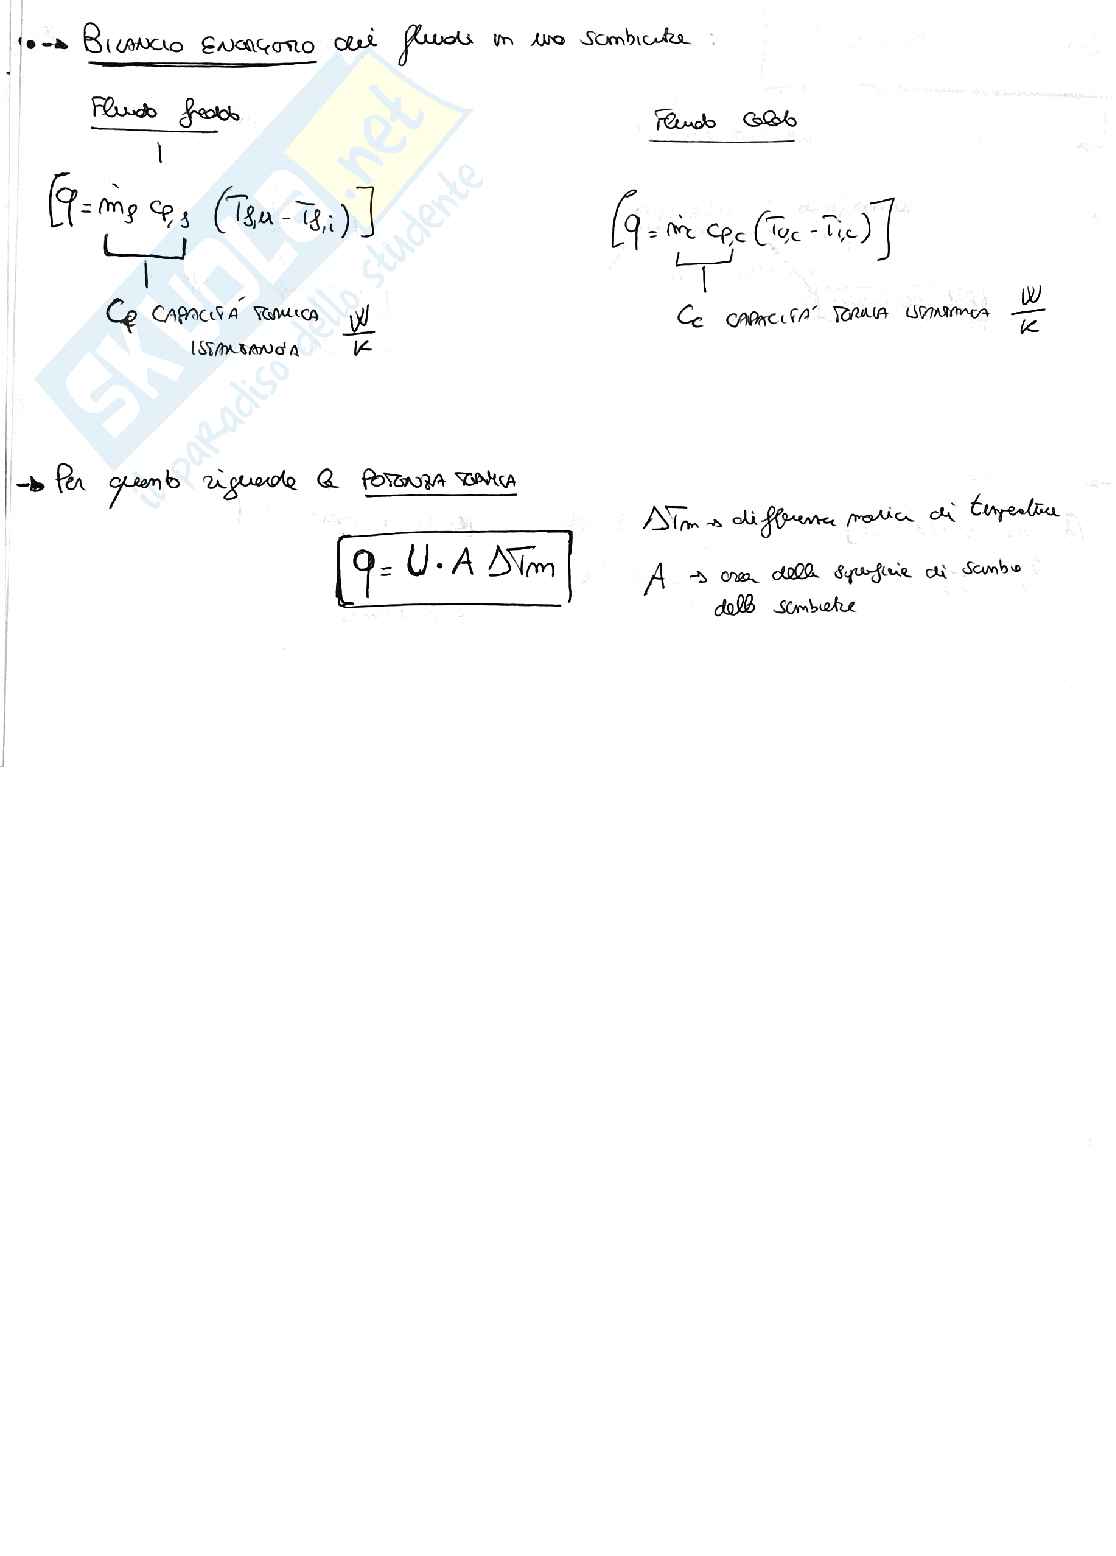 •→ BILANCIO ENERGETICO dei fluidi in uno scambiatore :
Fluido freddo
Fluido caldo
[q = ṁf cp,f (Tf,u - Tf,i)]
[q = ṁc cp,c (Tu,c - Ti,c)]
Cf CAPACITÁ TERMICA W/K
ISTANTANEA
Cc CAPACITÁ TERMICA ISTANTANEA W/K
→ Per quanto riguarda la POTENZA TERMICA
q = U · A ΔTm
ΔTm → differenza media di temperatura
A → area della superficie di scambio
dello scambiatore
SKUOLA.net
il paradiso dello studente